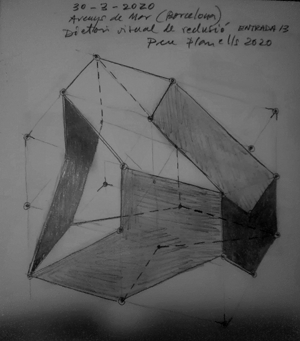 30-3-2020
Arenys de Mar (Barcelona)
Dietari visual de reclusió ENTRADA 13
Pere Planells 2020